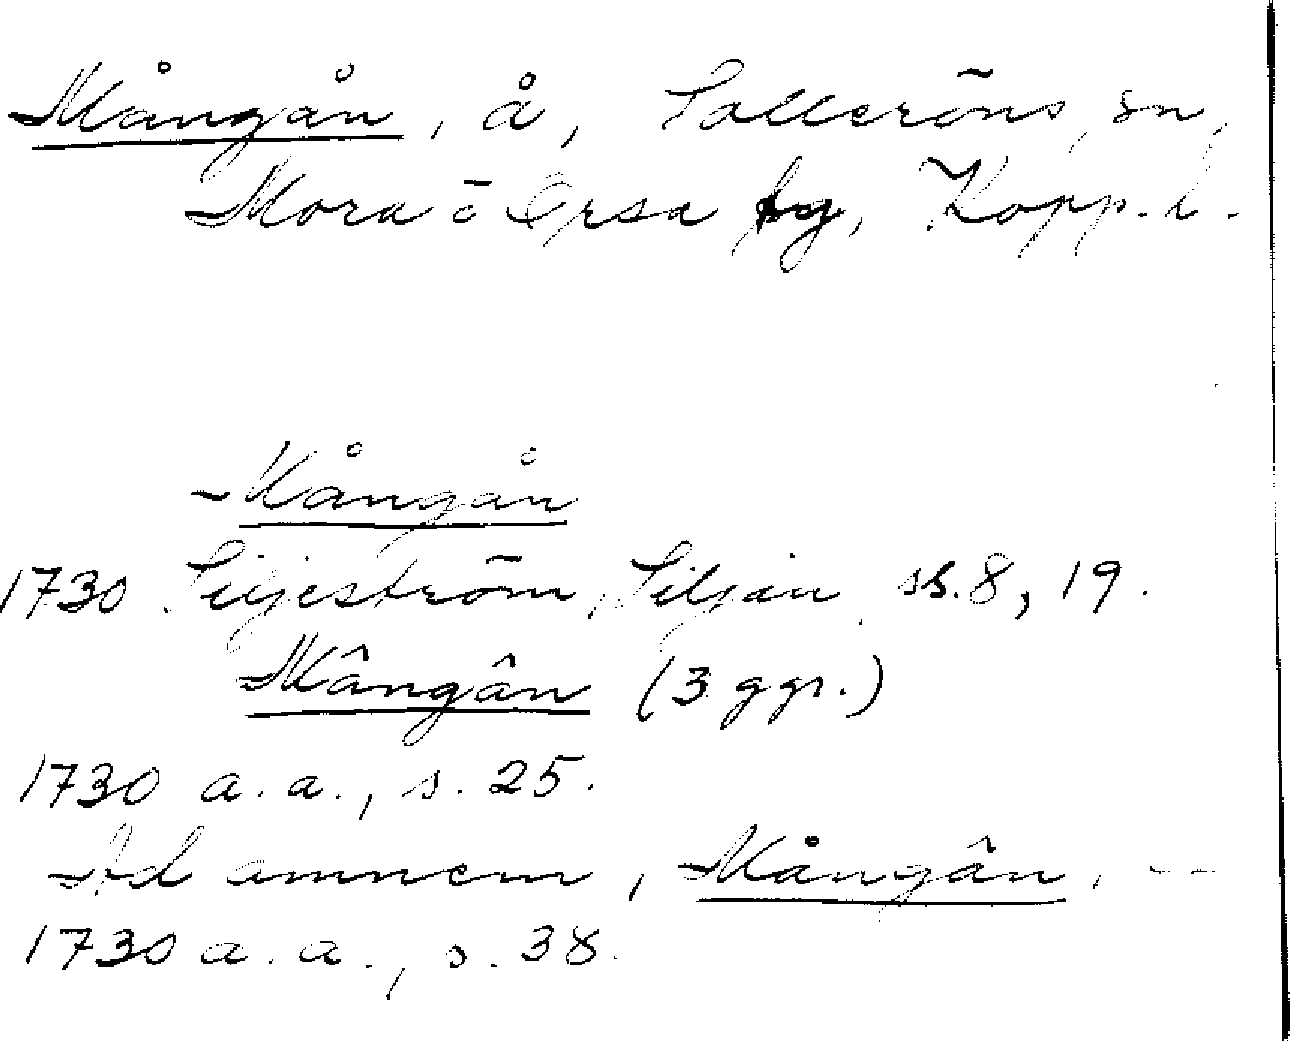 Mångån, å, Solleröns sn,
Mora o Orsa tg, Kopp. l.
Mångån
1730 Liljeström, Siljan ss. 8, 19.
Mângân (3 ggr.)
1730 a.a., s. 25.
Ad amnem, Mångân, --
1730 a.a., s. 38.